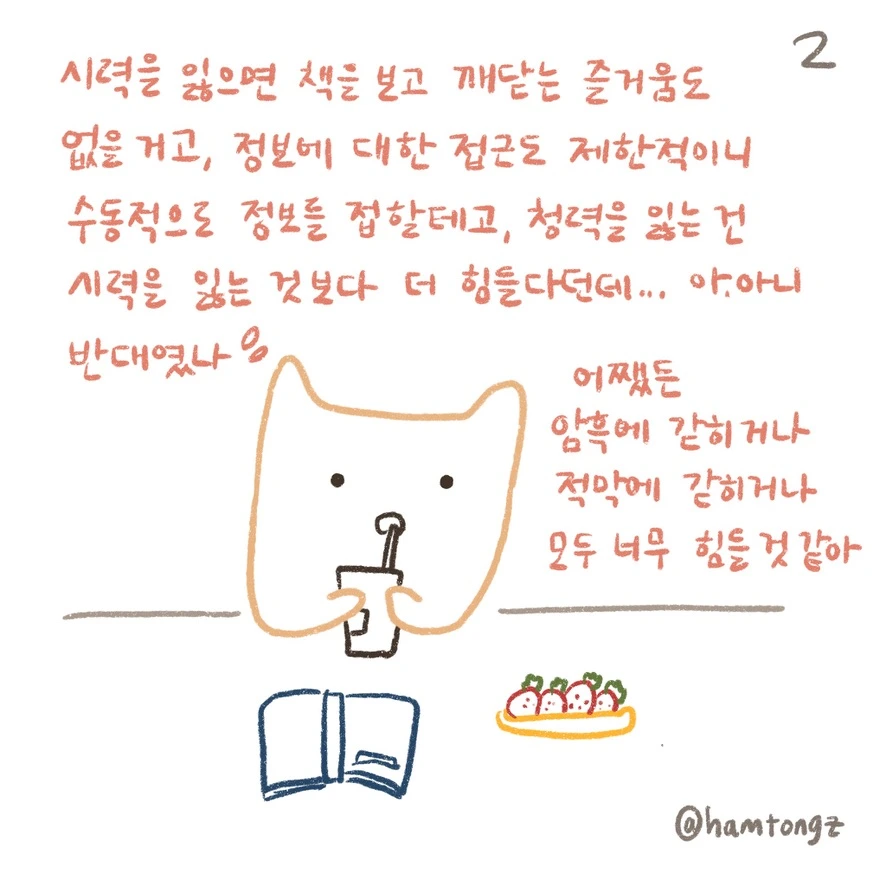 2
시력을 잃으면 책을 보고 깨닫는 즐거움도
없을 거고, 정보에 대한 접근도 제한적이니
수동적으로 정보를 접할테고, 청력을 잃는 건
시력을 잃는 것보다 더 힘들다던데... 아.아니
반대였나
어쨌든
암흑에 갇히거나
적막에 갇히거나
모두 너무 힘들 것 같아
@hamtongz